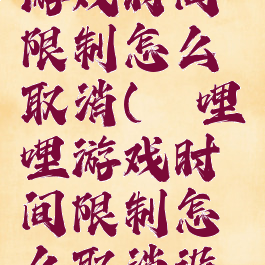 游戏时间
限制怎么
取消( 哩
哩游戏时
间限制怎
么取消设